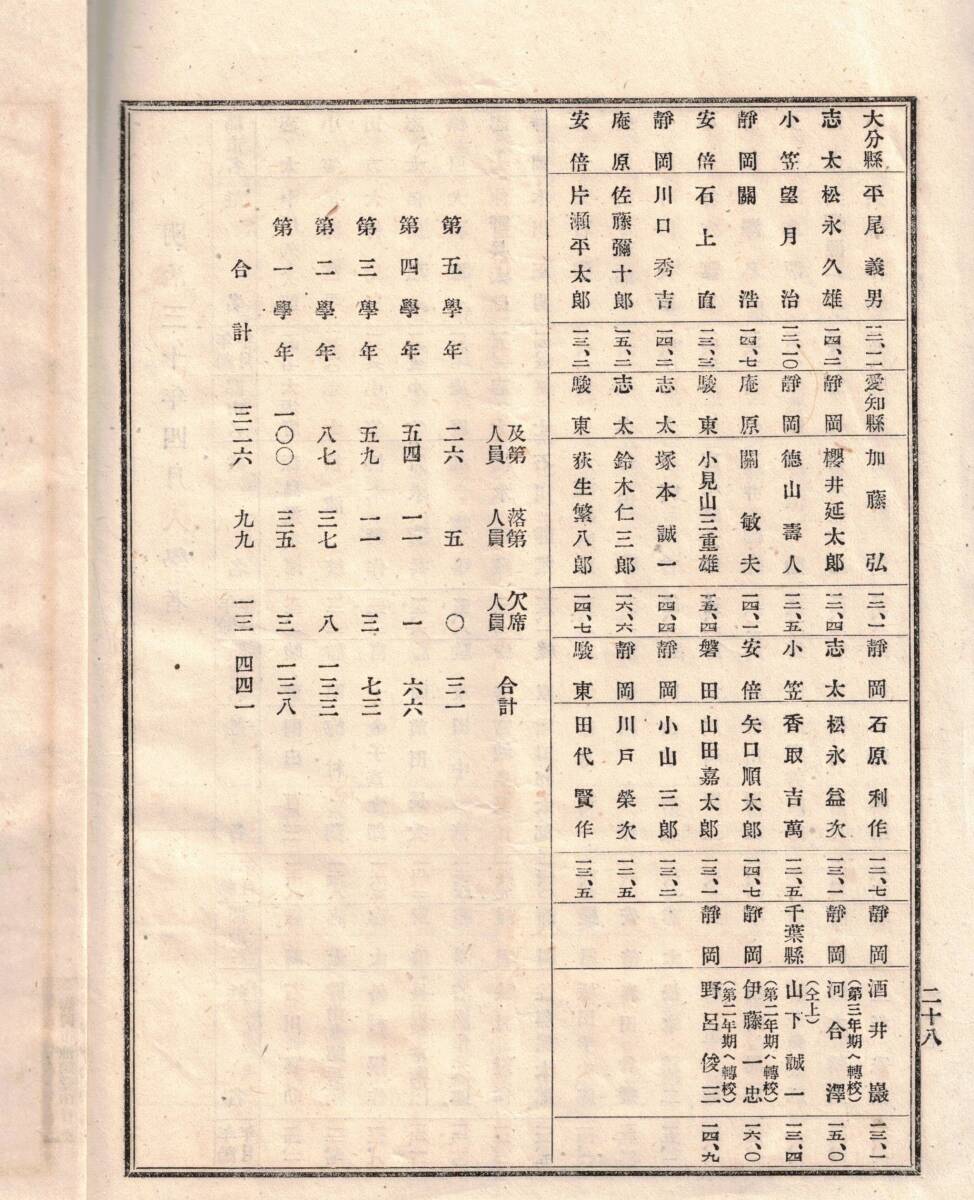 大分縣 平尾義男 一二、一一 愛知縣 加藤弘 一二、一 靜岡 石原利作 一二、七 靜岡 酒井巖 一三、一
(第三年期ヘ轉校)
志太 松永久雄 一四、二 靜岡 櫻井延太郎 一二、四 志太 松永益次 一三、一 靜岡 河合澤 一五、〇
(仝上)
小笠 望月治 一二、一〇 靜岡 德山壽人 一二、五 小笠 香取吉萬 一二、五 千葉縣 山下誠一 一三、四
(第二年期ヘ轉校)
靜岡 關浩 一四、七 庵原 關敏夫 一四、一 安倍 矢口順太郎 一四、七 靜岡 伊藤一忠 一六、〇
(第二年期ヘ轉校)
安倍 石上直 一三、三 駿東 小見山三重雄 一五、四 磐田 山田嘉太郎 一三、一 靜岡 野呂俊三 一四、九
靜岡 川口秀吉 一四、二 志太 塚本誠一 一四、四 靜岡 小山三郎 一三、二
庵原 佐藤彌十郎 一五、二 志太 鈴木仁三郎 一六、六 靜岡 川戸榮次 一二、五
安倍 片瀨平太郎 一三、二 駿東 荻生繁八郎 一四、七 駿東 田代賢作 一三、五
及第人員 落第人員 欠席人員 合計
第五學年 二六 五 〇 三一
第四學年 五四 一一 一 六六
第三學年 五九 一一 三 七三
第二學年 八七 三七 八 一三三
第一學年 一〇〇 三五 三 一三八
合計 三二六 九九 一三 四四一
二十八